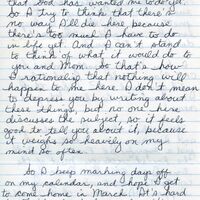 that God has wanted me to do yet.
So I try to think that there's
no way I'll die here because
there's too much I have to do
in life yet. And I can't stand
to think of what it would do to
you and Mom. So that's how
I rationalize that nothing will
happen to me here. I don't mean
to depress you by writing about
these things, but no one here
discusses the subject, so it feels
good to tell you about it, because
it weighs so heavily on my
mind so often.
So I keep marking days off
on my calendar, and I hope I get
to come home in March. It's hard